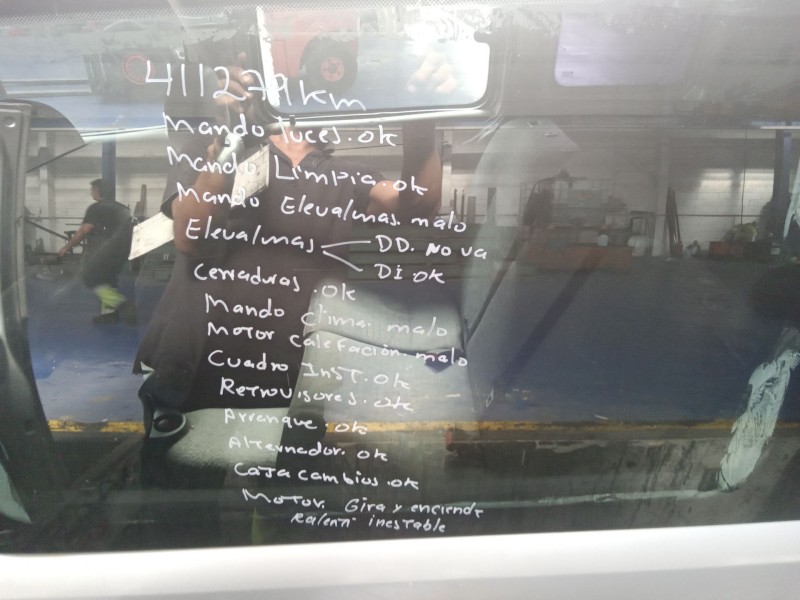 411279km
Mando luces. ok
Mando Limpia. ok
Mando Elevalunas. malo
Elevalunas DD. no va
Di. ok
Cerraduras. ok
Mando clima. malo
Motor calefación. malo
Cuadro Inst. ok
Retrovisores. ok
Arranque. ok
Alternador. ok
Caja cambios. ok
Motor. Gira y enciende
Ralenti inestable